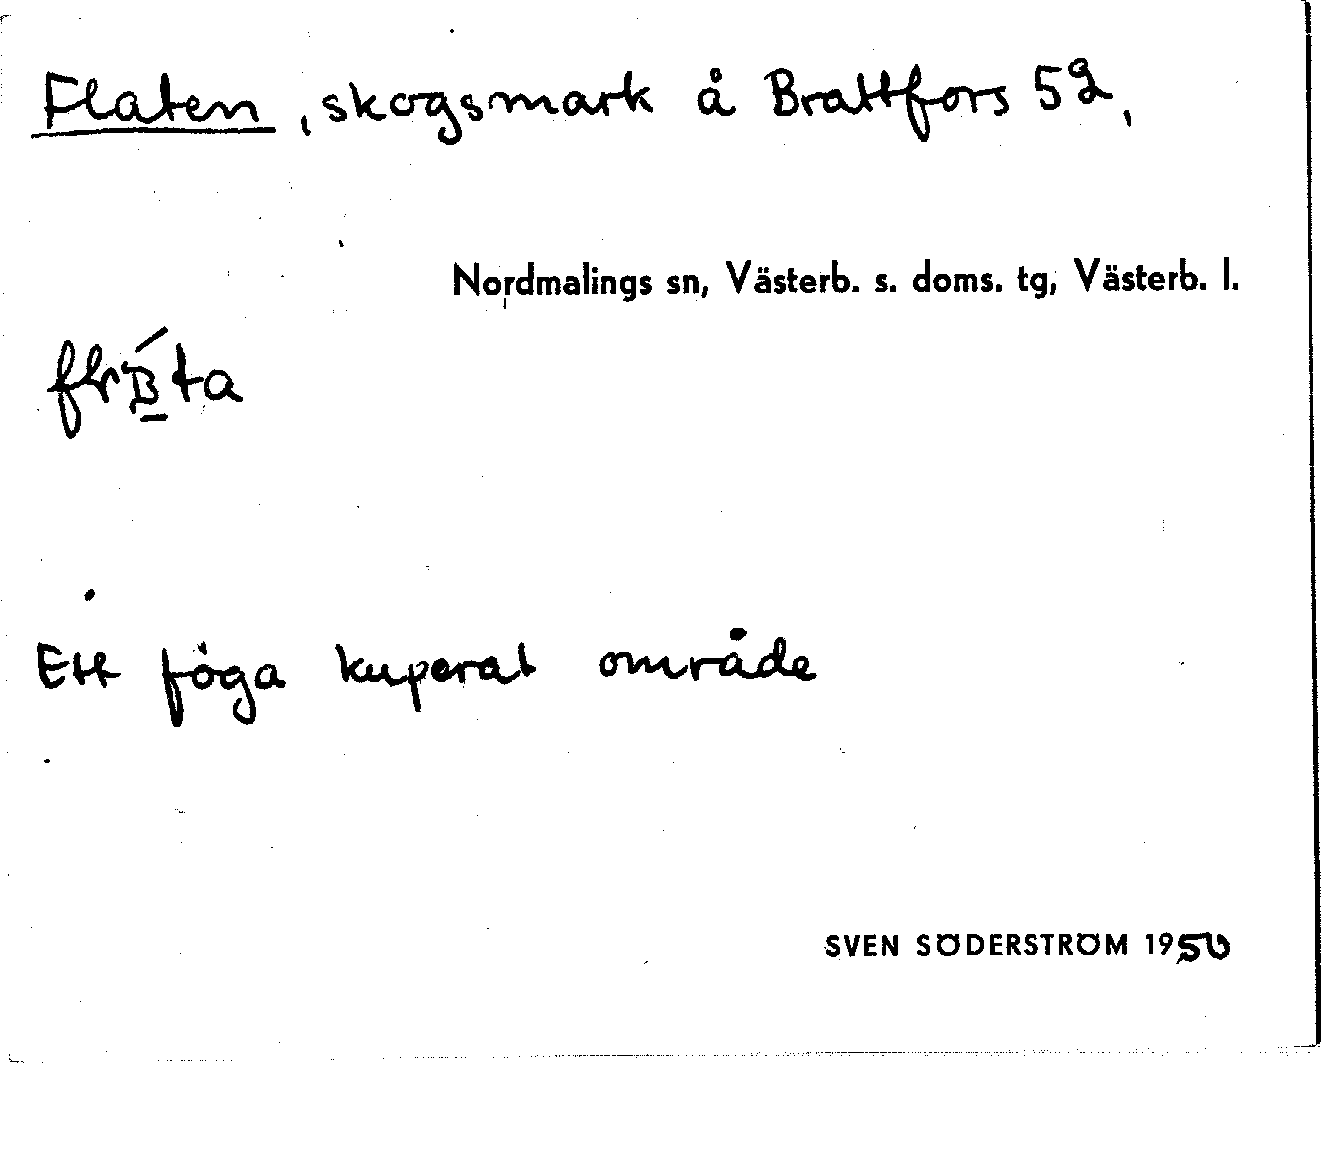 Flaten, skogsmark å Brattfors 5 2,
Nordmalings sn, Västerb. s. doms. tg, Västerb. l.
Ett föga kuperat område
SVEN SÖDERSTRÖM 1950